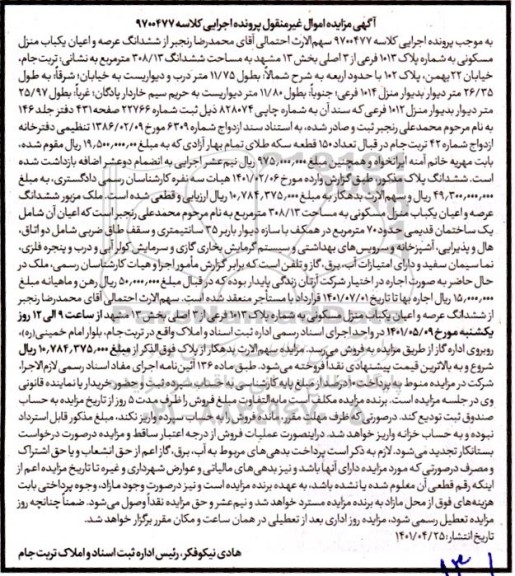 آگهی مزایده اموال غیرمنقول پرونده اجرایی کلاسه ۹۷۰۰۴۷۷
به موجب پرونده اجرایی کلاسه ۹۷۰۰۴۷۷ سهم‌الارث احتمالی آقای محمدرضا رنجبر از ششدانگ عرصه و اعیان یکباب منزل
مسکونی به شماره پلاک ۱۰۱۳ فرعی از ۳ اصلی بخش ۱۳ مشهد به مساحت ششدانگ ۳۰۸/۱۳ مترمربع به نشانی: تربت‌جام،
خیابان ۲۲ بهمن، پلاک ۱۰۲ با حدود اربعه به شرح شمالاً: بطول ۱۱/۷۵ متر درب و دیواریست به خیابان؛ شرقاً: به طول
۲۶/۳۵ متر دیوار بدیوار منزل ۱۰۱۴ فرعی؛ جنوباً: بطول ۱۱/۸۰ متر دیواریست به حریم سیم خاردار پادگان؛ غرباً: بطول ۲۵/۹۷
متر دیوار بدیوار منزل ۱۰۱۲ فرعی که سند آن به شماره چاپی ۸۲۸۰۷۴ ذیل ثبت شماره ۲۲۷۶۶ صفحه ۴۳۱ دفتر جلد ۱۴۶
به نام مرحوم محمدعلی رنجبر ثبت و صادر شده، به استناد سند ازدواج شماره ۶۳۰۹ مورخ ۱۳۸۶/۰۲/۰۹ تنظیمی دفترخانه
ازدواج شماره ۴۲ تربت‌جام در قبال تعداد ۱۵۰ قطعه سکه طلای تمام بهار آزادی که به مبلغ ۱۹,۵۰۰,۰۰۰,۰۰۰ ریال مقوم شده،
بابت مهریه خانم آمنه ایرانخواه و همچنین مبلغ ۹۷۵,۰۰۰,۰۰۰ ریال نیم‌عشر اجرایی به انضمام دوعشر اضافه بازداشت شده
است. ششدانگ پلاک مذکور طبق گزارش وارده مورخ ۱۴۰۱/۰۲/۰۶ هیات سه نفره کارشناسان رسمی دادگستری، به مبلغ
۴۹,۳۰۰,۰۰۰,۰۰۰ ریال و سهم‌الارث بدهکار به مبلغ ۱۰,۷۸۴,۳۷۵,۰۰۰ ریال ارزیابی و قطعی شده است. ملک مزبور ششدانگ
عرصه و اعیان یکباب منزل مسکونی به مساحت ۳۰۸/۱۳ مترمربع به نام مرحوم محمدعلی رنجبر است که اعیان آن شامل
یک ساختمان قدیمی حدود ۷۰ مترمربع در همکف با سازه دیوار باربر ۳۵ سانتیمتری و سقف طاق ضربی شامل دو اتاق،
هال و پذیرایی، آشپزخانه و سرویس‌های بهداشتی و سیستم گرمایش بخاری گازی و سرمایش کولر آبی و درب و پنجره فلزی،
نما سیمان سفید و دارای امتیازات آب، برق، گاز و تلفن است که برابر گزارش مأمور اجرا و هیات کارشناسان رسمی، ملک در
حال حاضر به صورت اجاره در اختیار شرکت آرتان زندگی پایدار بوده که در قبال مبلغ ۵۰,۰۰۰,۰۰۰ ریال رهن و ماهیانه مبلغ
۱۵,۰۰۰,۰۰۰ ریال اجاره بها تا تاریخ ۱۴۰۱/۰۷/۰۱ قرارداد با مستأجر منعقد شده است. سهم‌الارث احتمالی آقای محمدرضا رنجبر
از ششدانگ عرصه و اعیان یکباب منزل مسکونی به شماره پلاک ۱۰۱۳ فرعی از ۳ اصلی بخش ۱۳ مشهد از ساعت ۹ الی ۱۲ روز
یکشنبه مورخ ۱۴۰۱/۰۵/۰۹ در واحد اجرای اسناد رسمی اداره ثبت اسناد و املاک واقع در تربت‌جام، بلوار امام خمینی(ره)،
روبروی اداره گاز از طریق مزایده به فروش می‌رسد. مزایده سهم‌الارث بدهکار از پلاک فوق‌الذکر از مبلغ ۱۰,۷۸۴,۳۷۵,۰۰۰ ریال
شروع و به بالاترین قیمت پیشنهادی نقداً فروخته می‌شود. طبق ماده ۱۳۶ آئین‌نامه اجرای مفاد اسناد رسمی لازم‌الاجرا،
شرکت در مزایده منوط به پرداخت ۱۰ درصد از مبلغ پایه کارشناسی به حساب سپرده ثبت و حضور خریدار یا نماینده قانونی
وی در جلسه مزایده است. برنده مزایده مکلف است مابه‌التفاوت مبلغ فروش را ظرف مدت ۵ روز از تاریخ مزایده به حساب
صندوق ثبت تودیع کند. درصورتی‌که ظرف مهلت مقرر، مانده فروش را به حساب سپرده واریز نکند، مبلغ مذکور قابل استرداد
نبوده و به حساب خزانه واریز خواهد شد. دراینصورت عملیات فروش از درجه اعتبار ساقط و مزایده درصورت درخواست
بستانکار تجدید می‌شود. لازم به ذکر است پرداخت بدهی‌های مربوط به آب، برق، گاز اعم از حق انشعاب و یا حق اشتراک
و مصرف درصورتی که مورد مزایده دارای آنها باشد و نیز بدهی‌های مالیاتی و عوارض شهرداری و غیره تا تاریخ مزایده اعم از
اینکه رقم قطعی آن معلوم شده یا نشده باشد، به عهده برنده مزایده است و نیز درصورت وجود مازاد، وجوه پرداختی بابت
هزینه‌های فوق از محل مازاد به برنده مزایده مسترد خواهد شد و نیم‌عشر و حق مزایده نقداً وصول می‌شود. ضمناً چنانچه روز
مزایده تعطیل رسمی شود، مزایده روز اداری بعد از تعطیلی در همان ساعت و مکان مقرر برگزار خواهد شد.
تاریخ انتشار: ۱۴۰۱/۰۴/۲۵
هادی نیکوفکر، رئیس اداره ثبت اسناد و املاک تربت جام